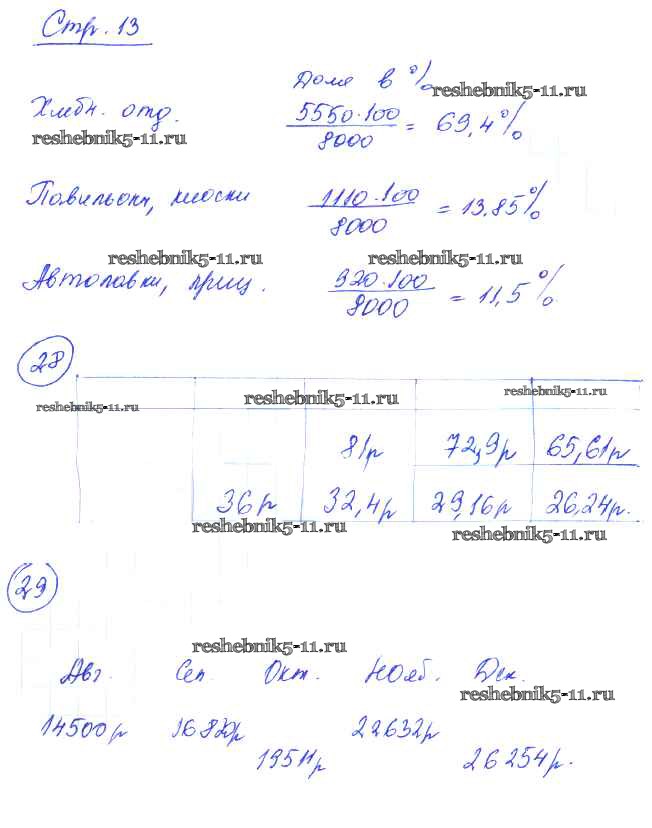 Стр. 13
Доля в %
resheb​nik5-11.ru
Хлебн. отд. 5550·100/8000 = 69,4%
reshebnik5-11.ru
Павильоны, киоски 1110·100/8000 = 13.85%
reshebnik5-11.ru reshebnik5-11.ru
Автолавки, приц. 920·100/8000 = 11,5%
28
reshebnik5-11.ru reshebnik5-11.ru reshebnik5-11.ru
81р 72,9р 65,61р
36р 32,4р 29,16р 26,24р.
reshebnik5-11.ru reshebnik5-11.ru
29
reshebnik5-11.ru
Авг. Сен. Окт. Нояб. Дек.
reshebnik5-11.ru
14500р 16820р 22632р
19511р 26254р.